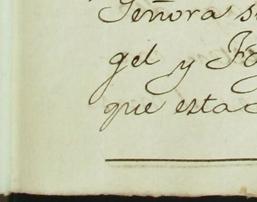 Señora s
gel y Fo
que esta